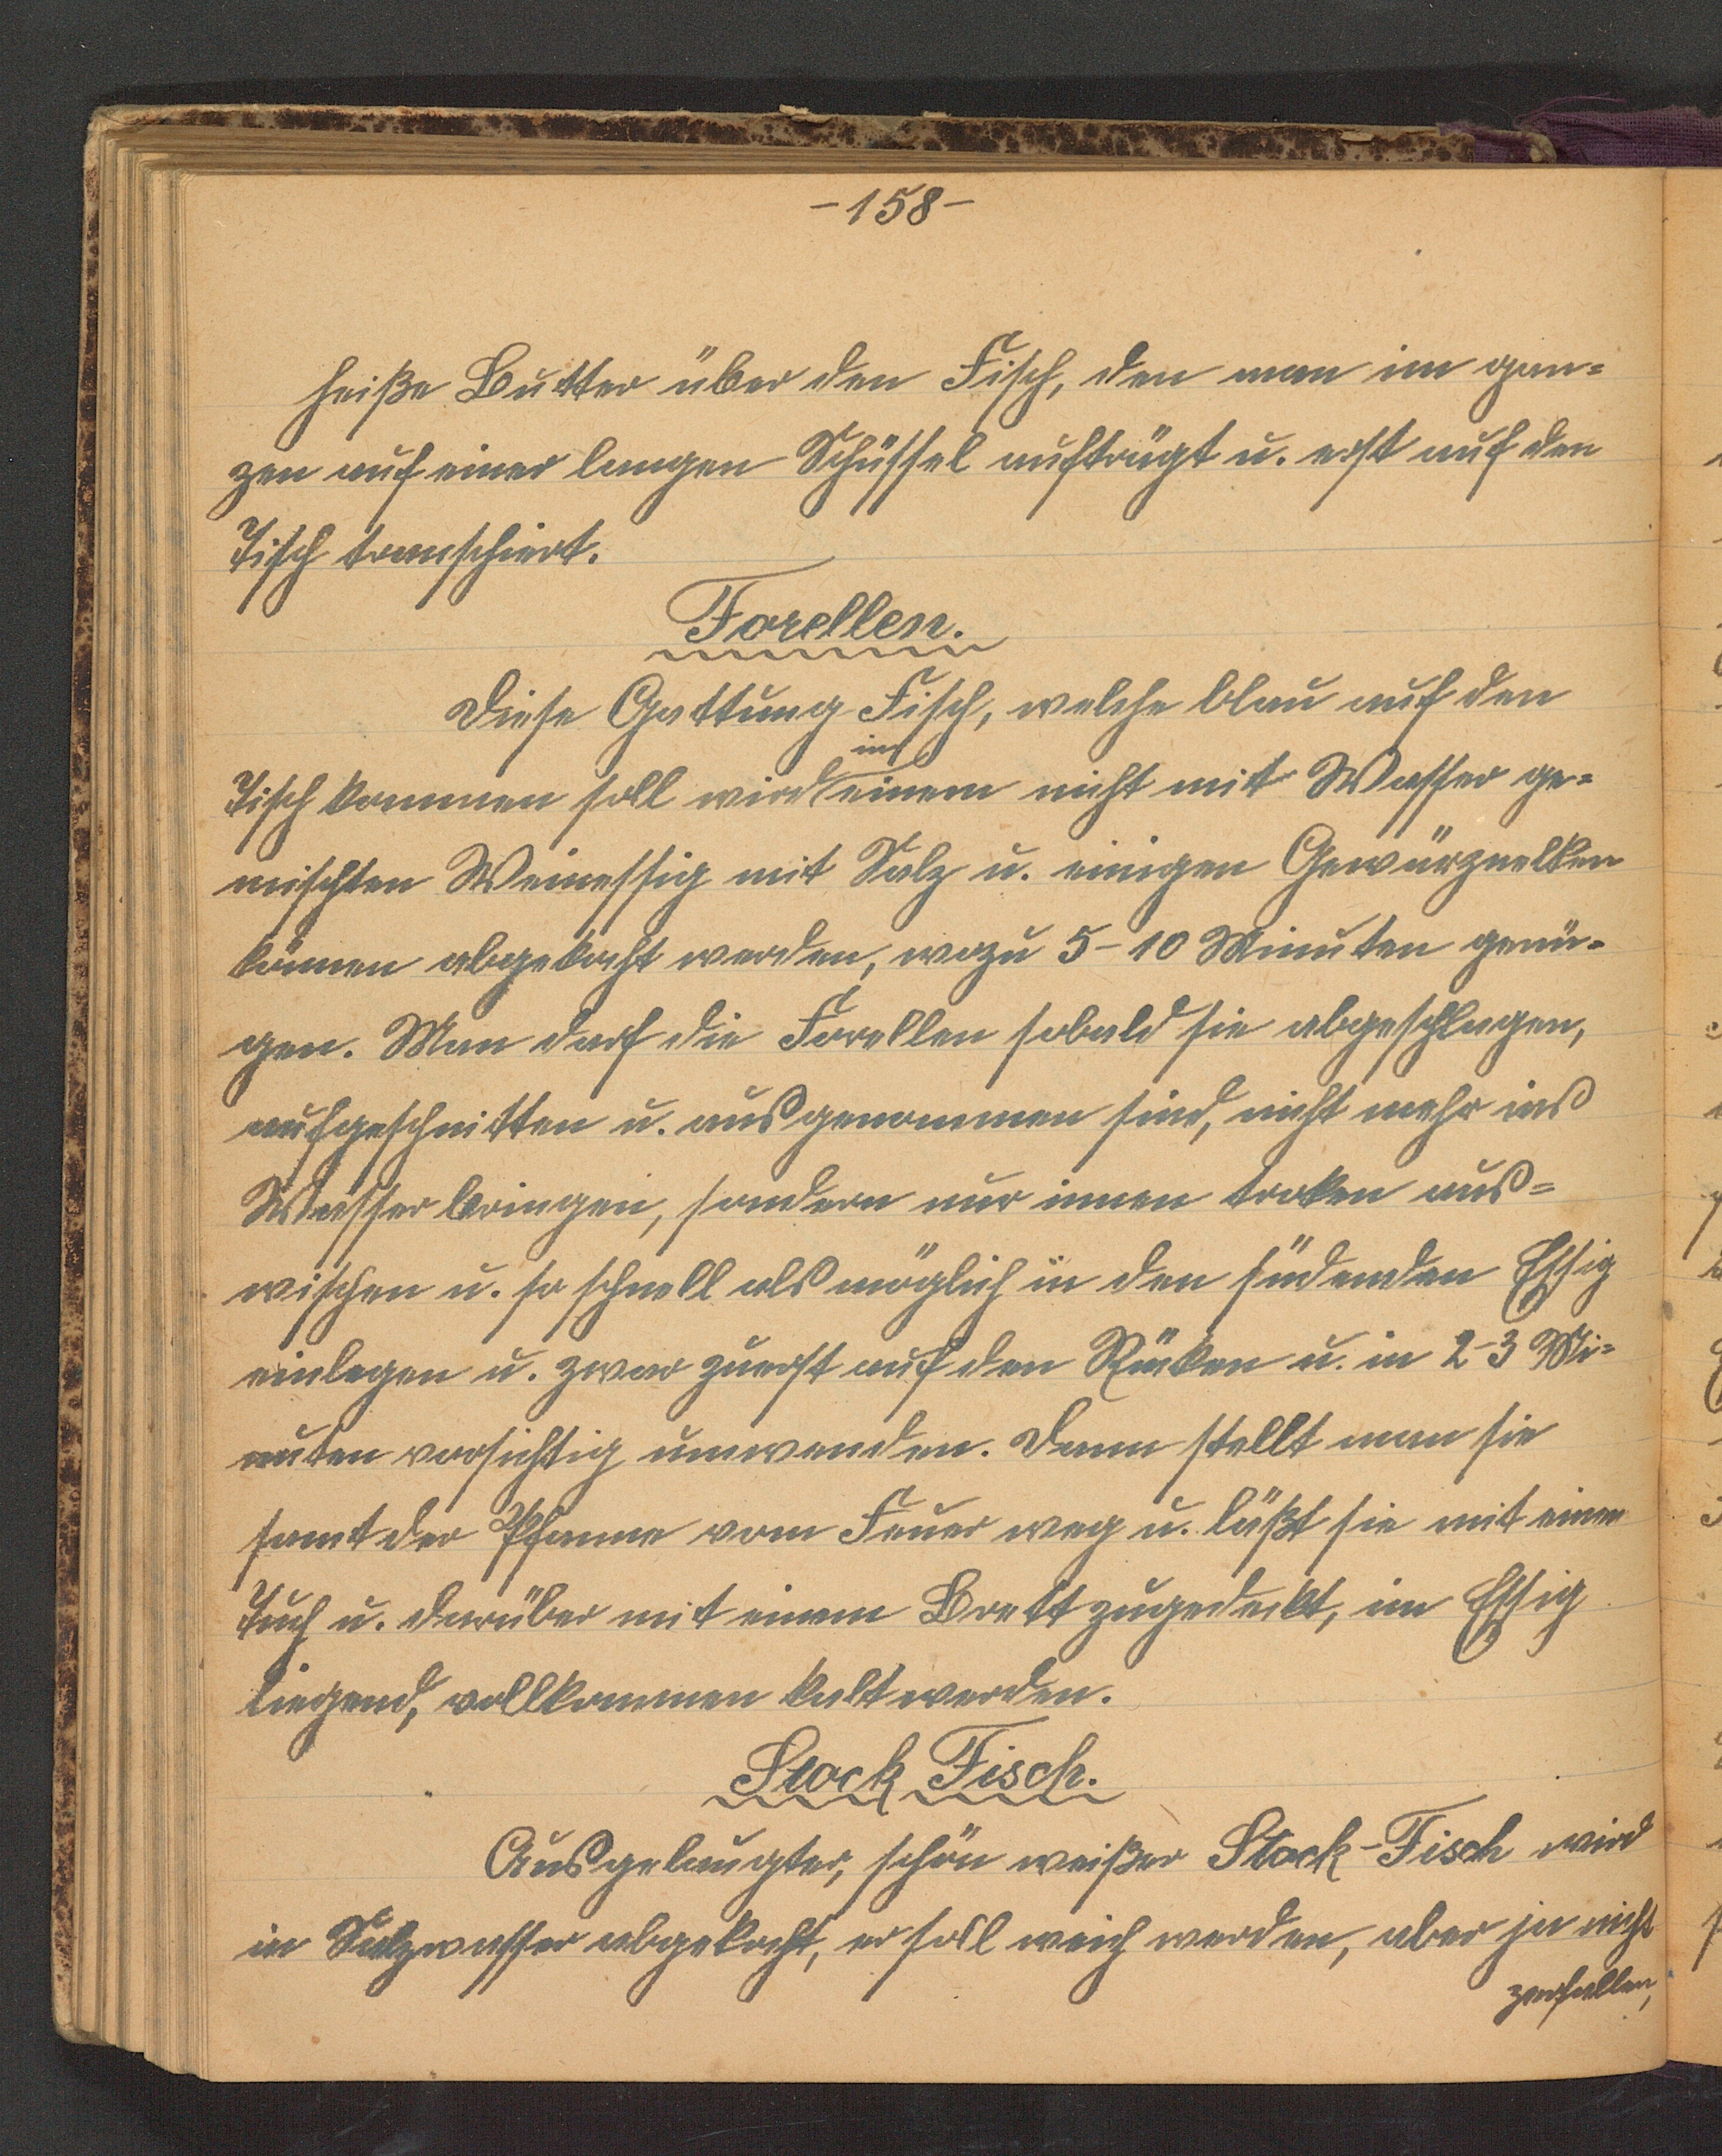 -158-
heiße Butter über den Fisch, den man im gan=
zen auf einer langen Schüssel aufträgt u. erst auf den
Tisch transchiert.
Forellen.
Diese Gattung Fisch, welche blau auf den
in
Tisch kommen soll wird einem nicht mit Wasser ge=
mischten Weinessig mit Salz u. einigen Gewürznelken
können abgekocht werden, wozu 5-10 Minuten genü=
gen. Man darf die Forellen sobald sie abgeschlagen,
aufgeschnitten u. ausgenommen sind, nicht mehr ins
Wasser bringen, sondern nur innen troken aus=
wischen u. so schnell als möglich in den südenden Essig
einlegen u. zwar zuerst auf den Rüken u. in 2-3 Mi=
nuten vorsichtig umwenden. Dann stellt man sie
samt der Pfanne vom Feuer weg u. läßt sie mit einem
Tuch u. darüber mit einem Brett zugedekt, im Essig
liegend, vollkommen kalt werden.
Stock Fisch.
Ausgelaugter, schön weißer Stock-Fisch wird
in Salzwasser abgekocht, er soll weich werden, aber ja nicht
zerfallen,